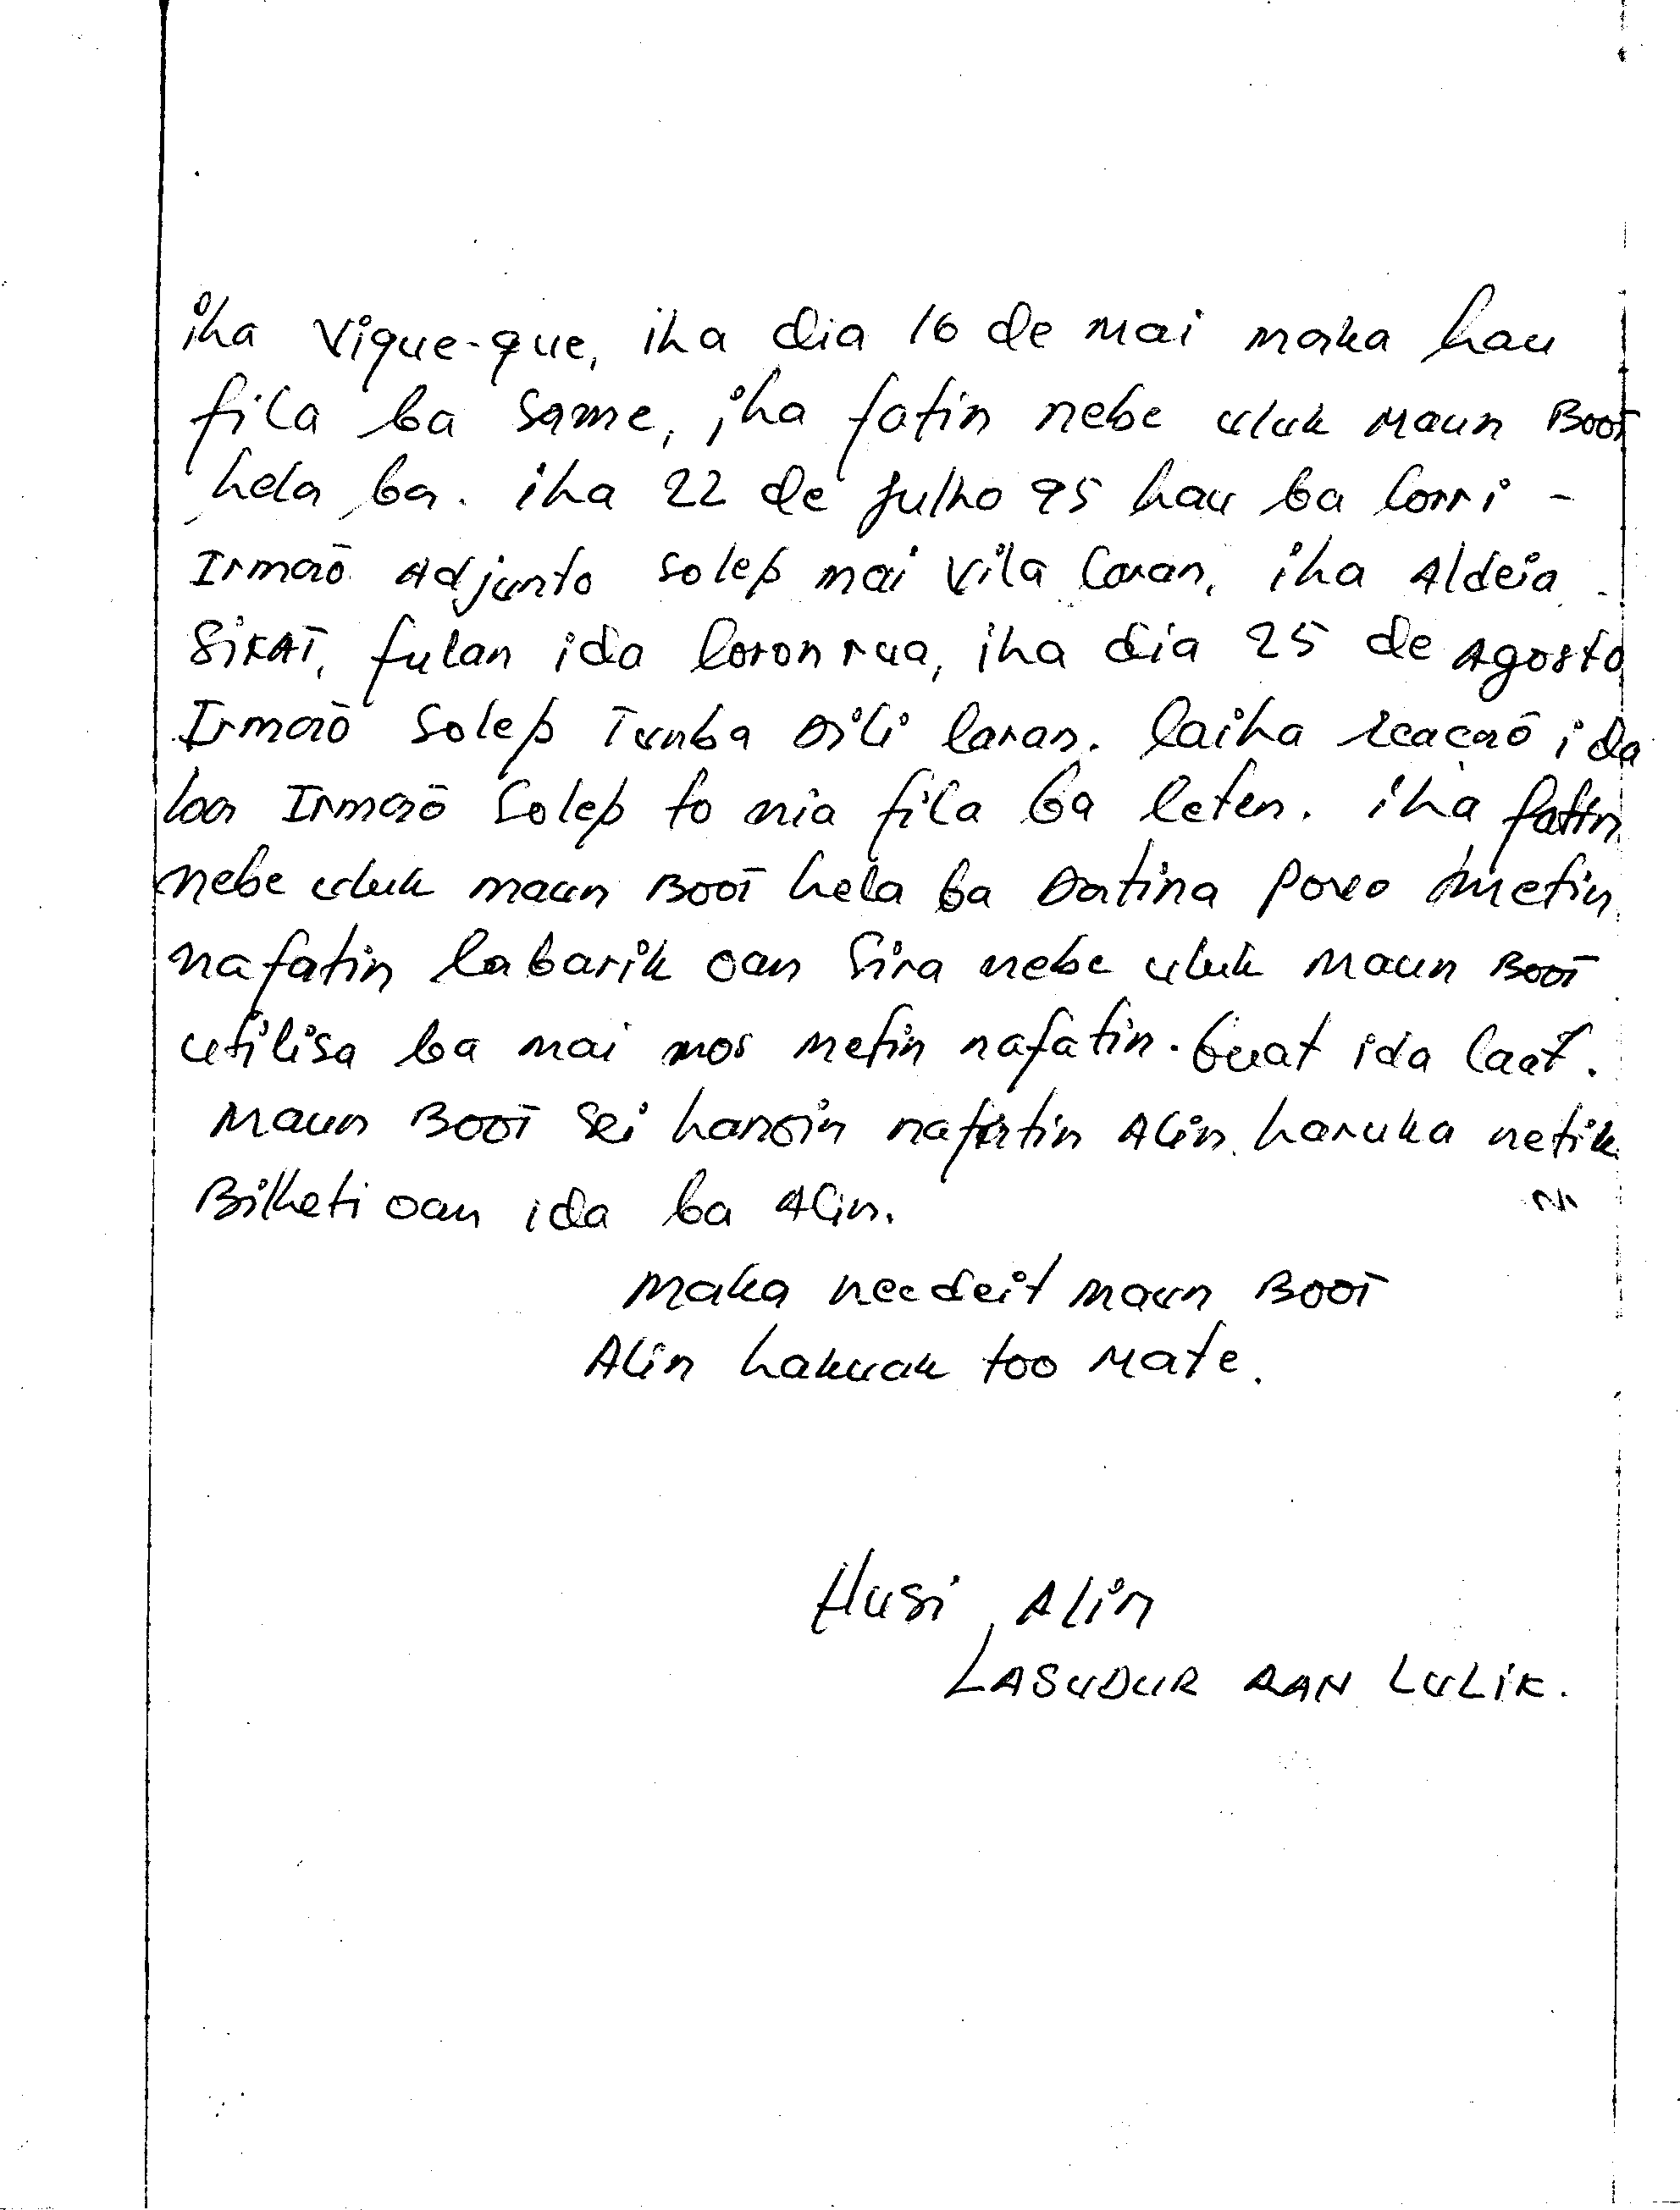 iha Vique-que, iha dia 16 de mai maka hau
fila ba Same, iha fatin nebe uluk Maun Boot
hela ba. iha 22 de Julho 95 hau ba lorri -
Irmaõ Adjunto Solep mai Vila laran, iha Aldeia
SiKAT, fulan ida loron rua, iha dia 25 de Agosto
Irmaõ Solep Tunba Dili laran. laiha reacaõ ida
loa Irmaõ Solep to nia fila ba leten. iha fatin
nebe uluk maun Boot hela ba Datina povo metin
nafatin labarik oan sira nebe uluk Maun Boot
utilisa ba mai mos metin nafatin. buat ida laat.
Maun Boot sei hanoin nafatin Alin haruka netik
Bilheti oan ida ba Alin.
maka nee deit maun Boot
Alin hakuak too Mate.
Husi Alin
LASUDUR RAN LULiK.